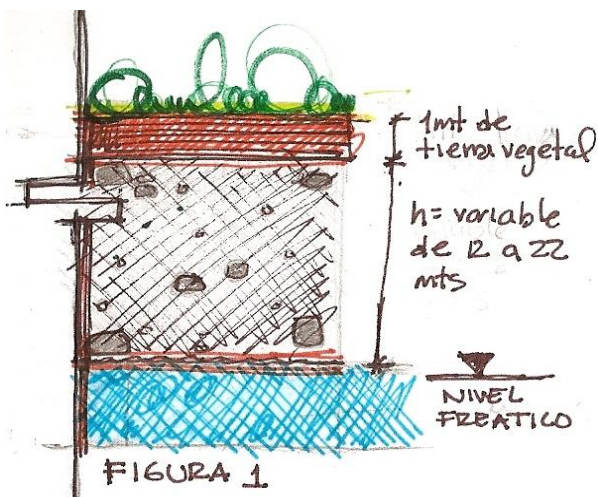 1mt de
tierra vegetal
h= variable
de 12 a 22
mts
NIVEL
FREATICO
FIGURA 1